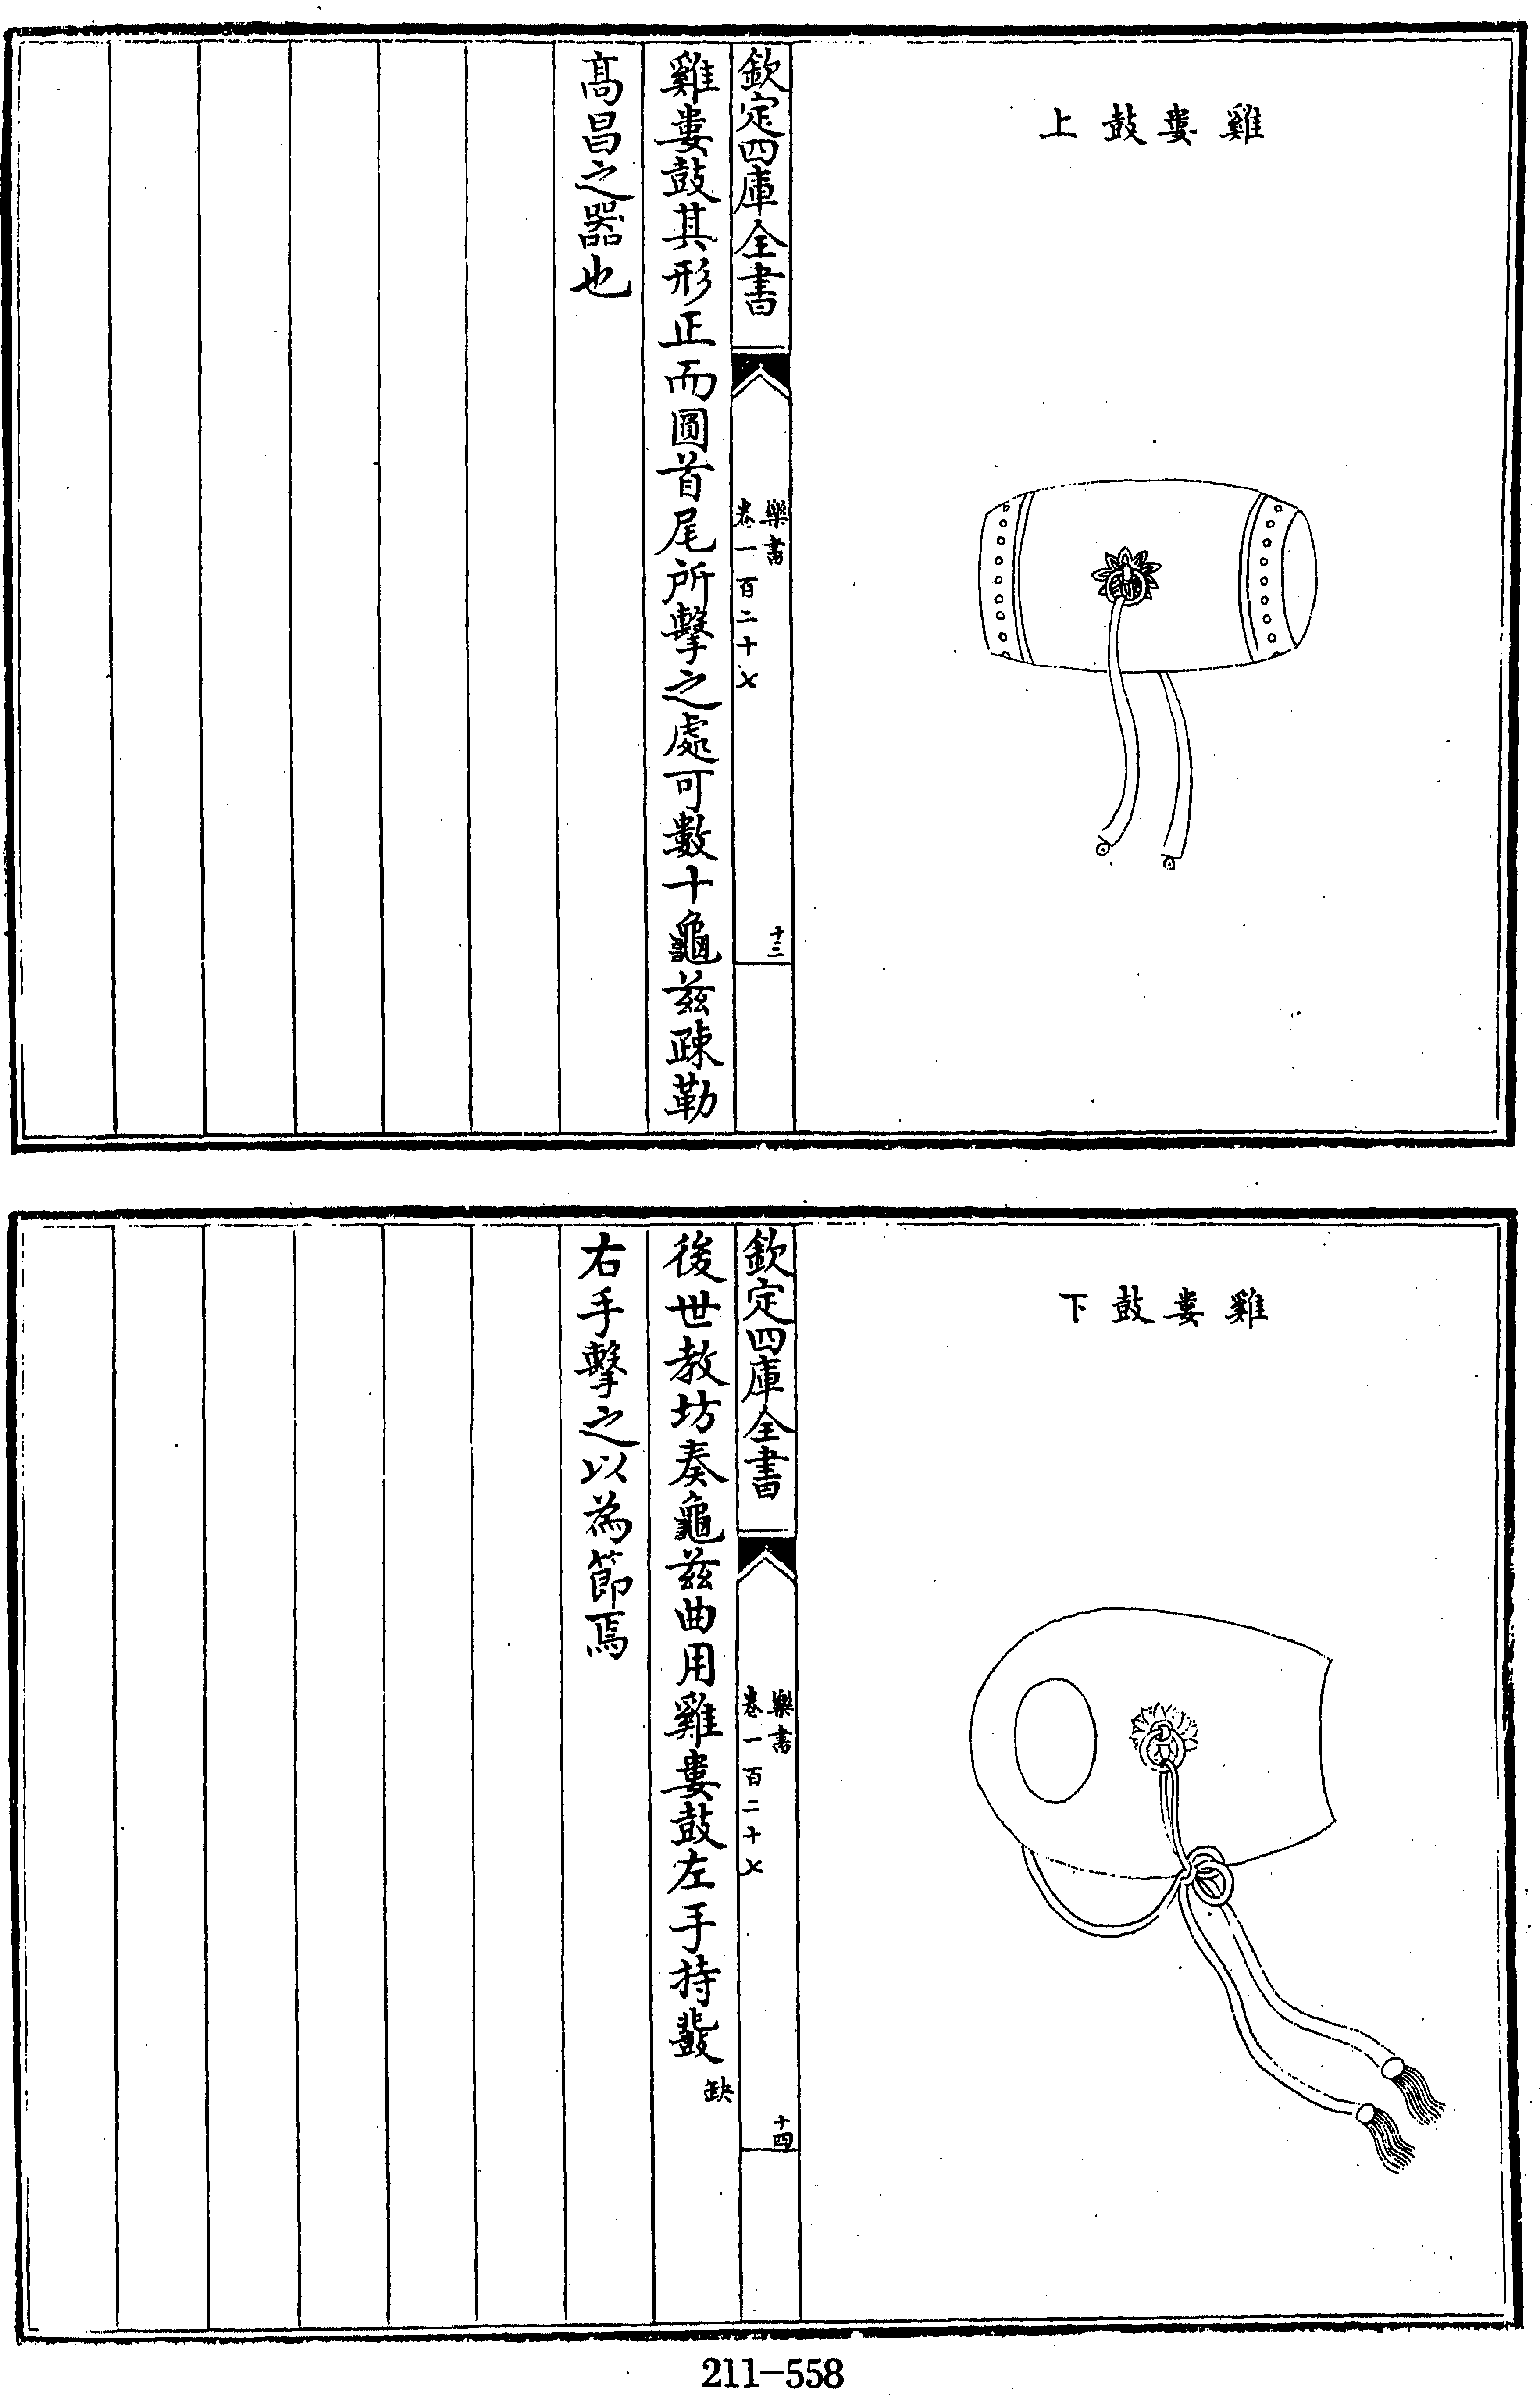 雞婁鼓上
欽定四庫全書
樂書
卷一百二十七
十三
雞婁鼓其形正而圓首尾所擊之處可數十龜兹疎勒
髙昌之器也
雞婁鼓下
欽定四庫全書
樂書
卷一百二十七
十四
後世教坊奏龜兹曲用雞婁鼓左手持鼗缺
右手擊之以為節焉
211-558